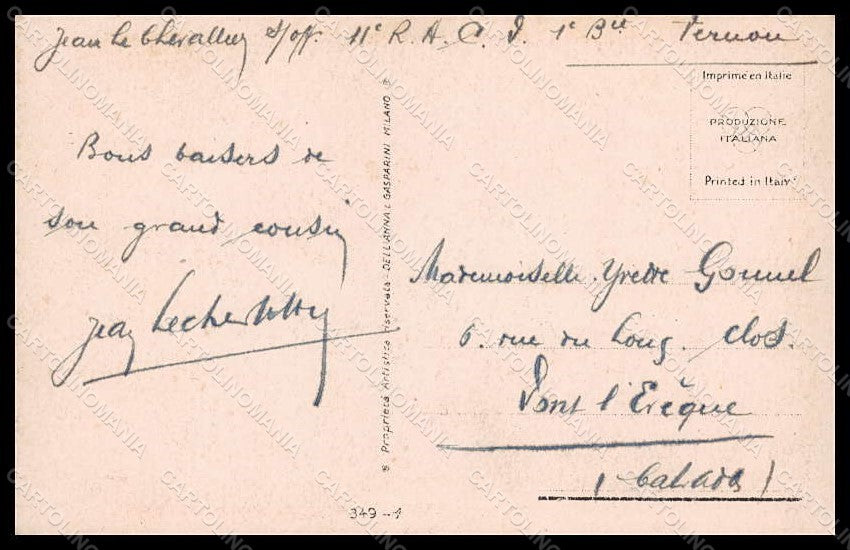 Jean Le Chevallier S/off. 11e R. A. C. 1e Bie Vernon
Imprimé en Italie
PRODUZIONE
ITALIANA
Printed in Italy
Bons baisers de
son grand cousin
Jean
® Proprietà Artistica riservata DELL'ANNA & GASPARINI MILANO ®
Mademoiselle Yvette
6. rue du Long. Clos.
Pont l'Evêque
(Calvados)
349-1
CARTOLINOMANIA